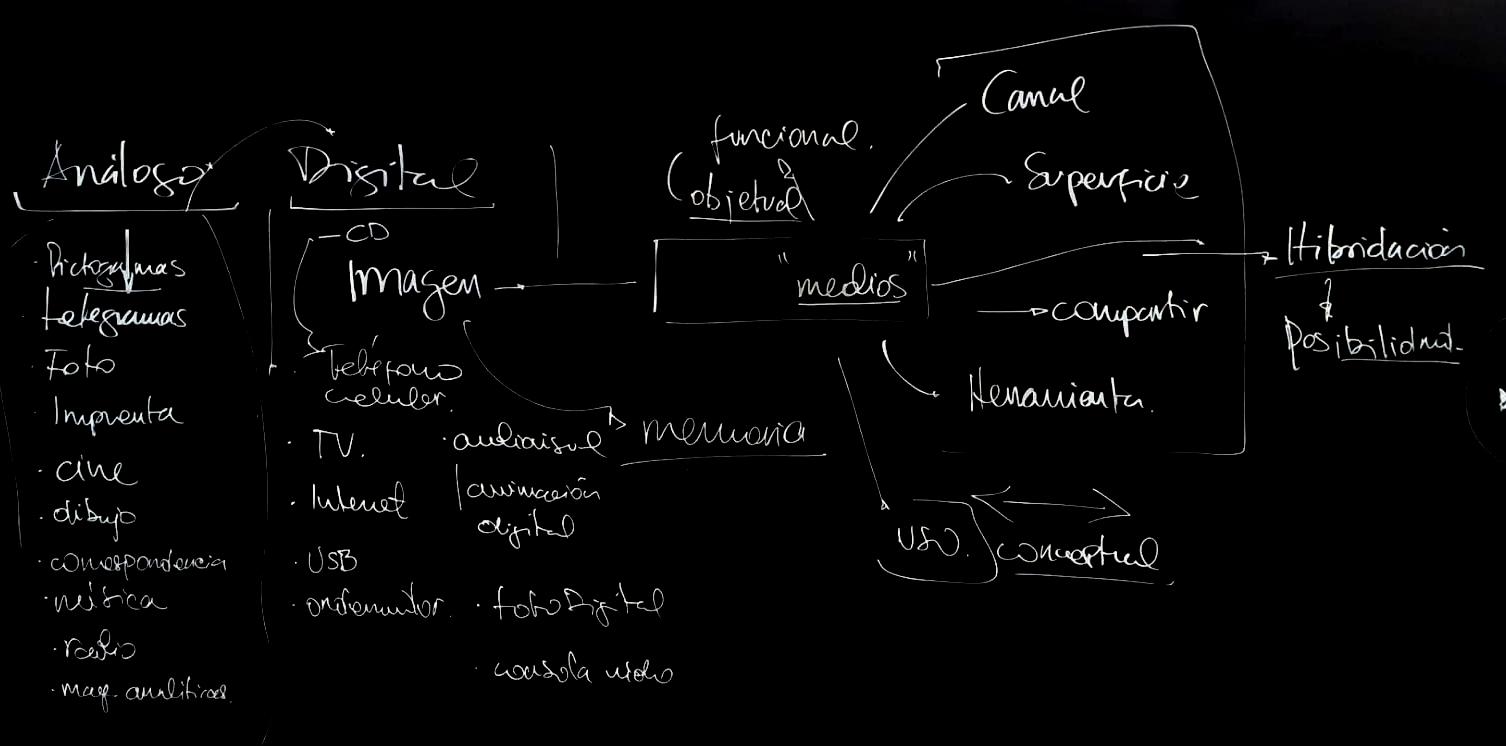 Análogo
· Pictogramas
· telegramas
· Foto
· Imprenta
· cine
· dibujo
· correspondencia
· música
· radio
· maq. analíticas.
Digital
— CD
Imagen
· Teléfono
celular.
· TV.
· Internet
· USB
· ordenador.
· audiovisual
animación
digital
· foto Digital
· consola video
memoria
funcional.
objetual
"medios"
Canal
Superficie
compartir
Herramienta.
uso.
conceptual
Hibridación
Posibilidad.